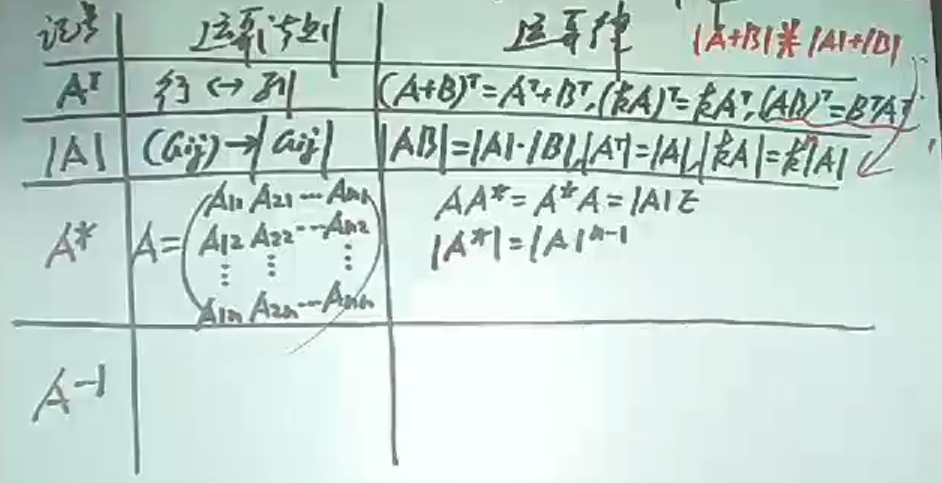 记号 运算法则 运算律 |A+B|≠|A|+|B|
Aᵀ 行↔列 (A+B)ᵀ=Aᵀ+Bᵀ,(kA)ᵀ=kAᵀ,(AB)ᵀ=BᵀAᵀ
|A| (aij)→|aij| |AB|=|A|·|B|,|Aᵀ|=|A|,|kA|=kⁿ|A|
A* A=(A11 A21 ⋯ An1 AA*=A*A=|A|E
A12 A22 ⋯ An2 |A*|=|A|ⁿ⁻¹
⋮ ⋮ ⋮
A1n A2n ⋯ Ann)
A⁻¹